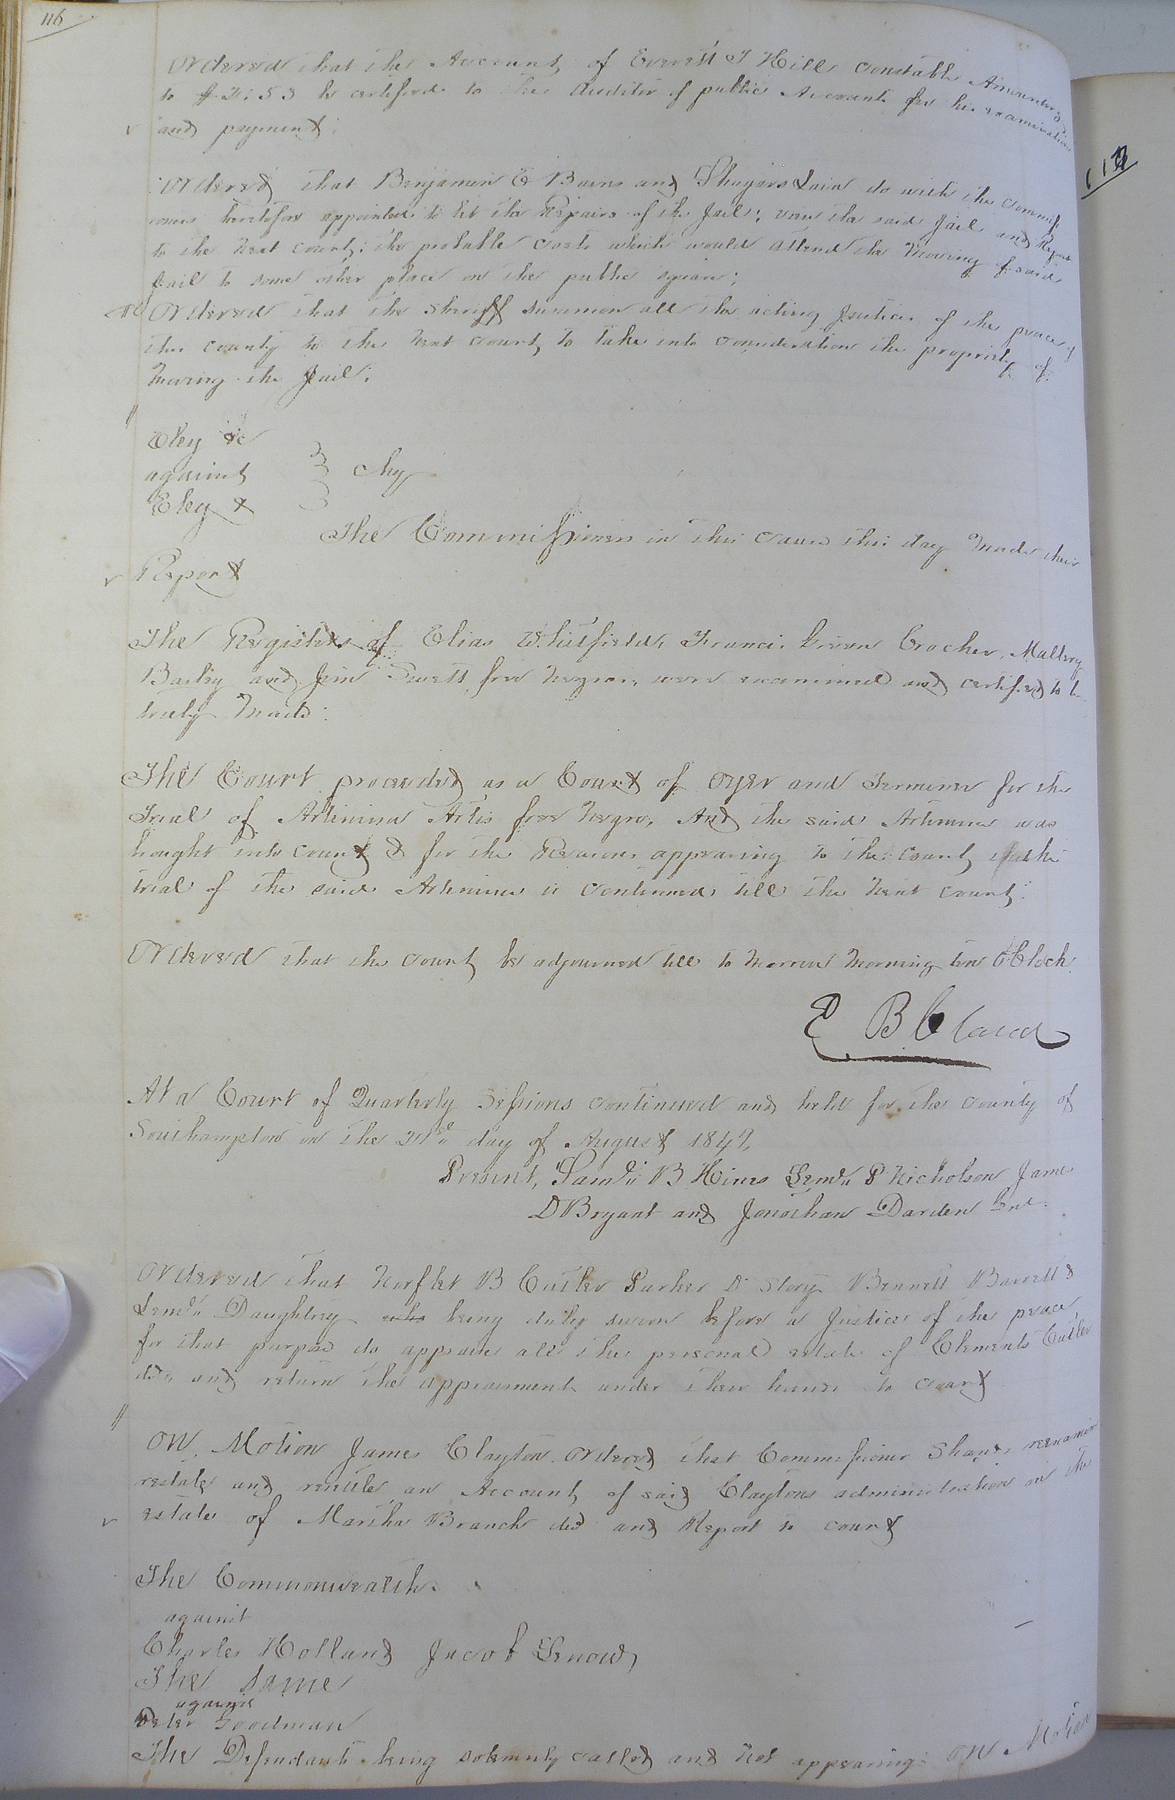 116
Ordered that the Account of Everett J Hill constable Amounting
to $ 53 be certified to the Auditor of public Accounts for his examination
and payment:
Ordered that Benjamin E Barns and Shugars Lain do with the commiss
ioners heretofore appointed to let the Repairs of the Jail; view the said Jail and Report
to the next court: the probable costs which would attend the moving of said
Jail to some other place on the public square;
Ordered that the Sheriff summon all the acting Justices of the peace of
this county to the next court to take into consideration the propriety of
moving the Jail:
Eley &c
against
Eley &
Chy
The Commissioners in this cause this day made their
Report
The Registers of Elias Whitfield, Francis Crocker, Mallory
Bailey and Jim Swett free negroes, were examined and certified to be
truly made:
The Court proceeded as a Court of Oyer and Terminer for the
Trial of Artimina Artis free negro, And the said Artimina was
brought into court & for the Reasons appearing to the court the
trial of the said Artimina is continued till the next court:
Ordered that the court be adjourned till to morrow morning ten OClock
E B Claud
At a Court of Quarterly Sessions continued and held for the county of
Southampton on the 21st day of August 1849,
Present, Saml B Hines Leml P Nicholson James
D Bryant and Jonathan Darden Gent.
Ordered that Norflet B Cutler Parker D Story Bennett Barrett &
Leml Daughtrey being duly sworn before a Justice of the peace,
for that purpose do appraise all the personal estate of Clements Cutler
decd and return the appraisment under their hands to court
On Motion James Clayton ordered that Commissioner Shands reexamine
restate and resettle an Account of said Claytons administration on the
estate of Martha Branch decd and Report to court
The Commonwealth
against
Charles Holland Jacob Snow,
The Same
against
Peter Goodman
The Defendants being solemnly called and not appearing: On Motion